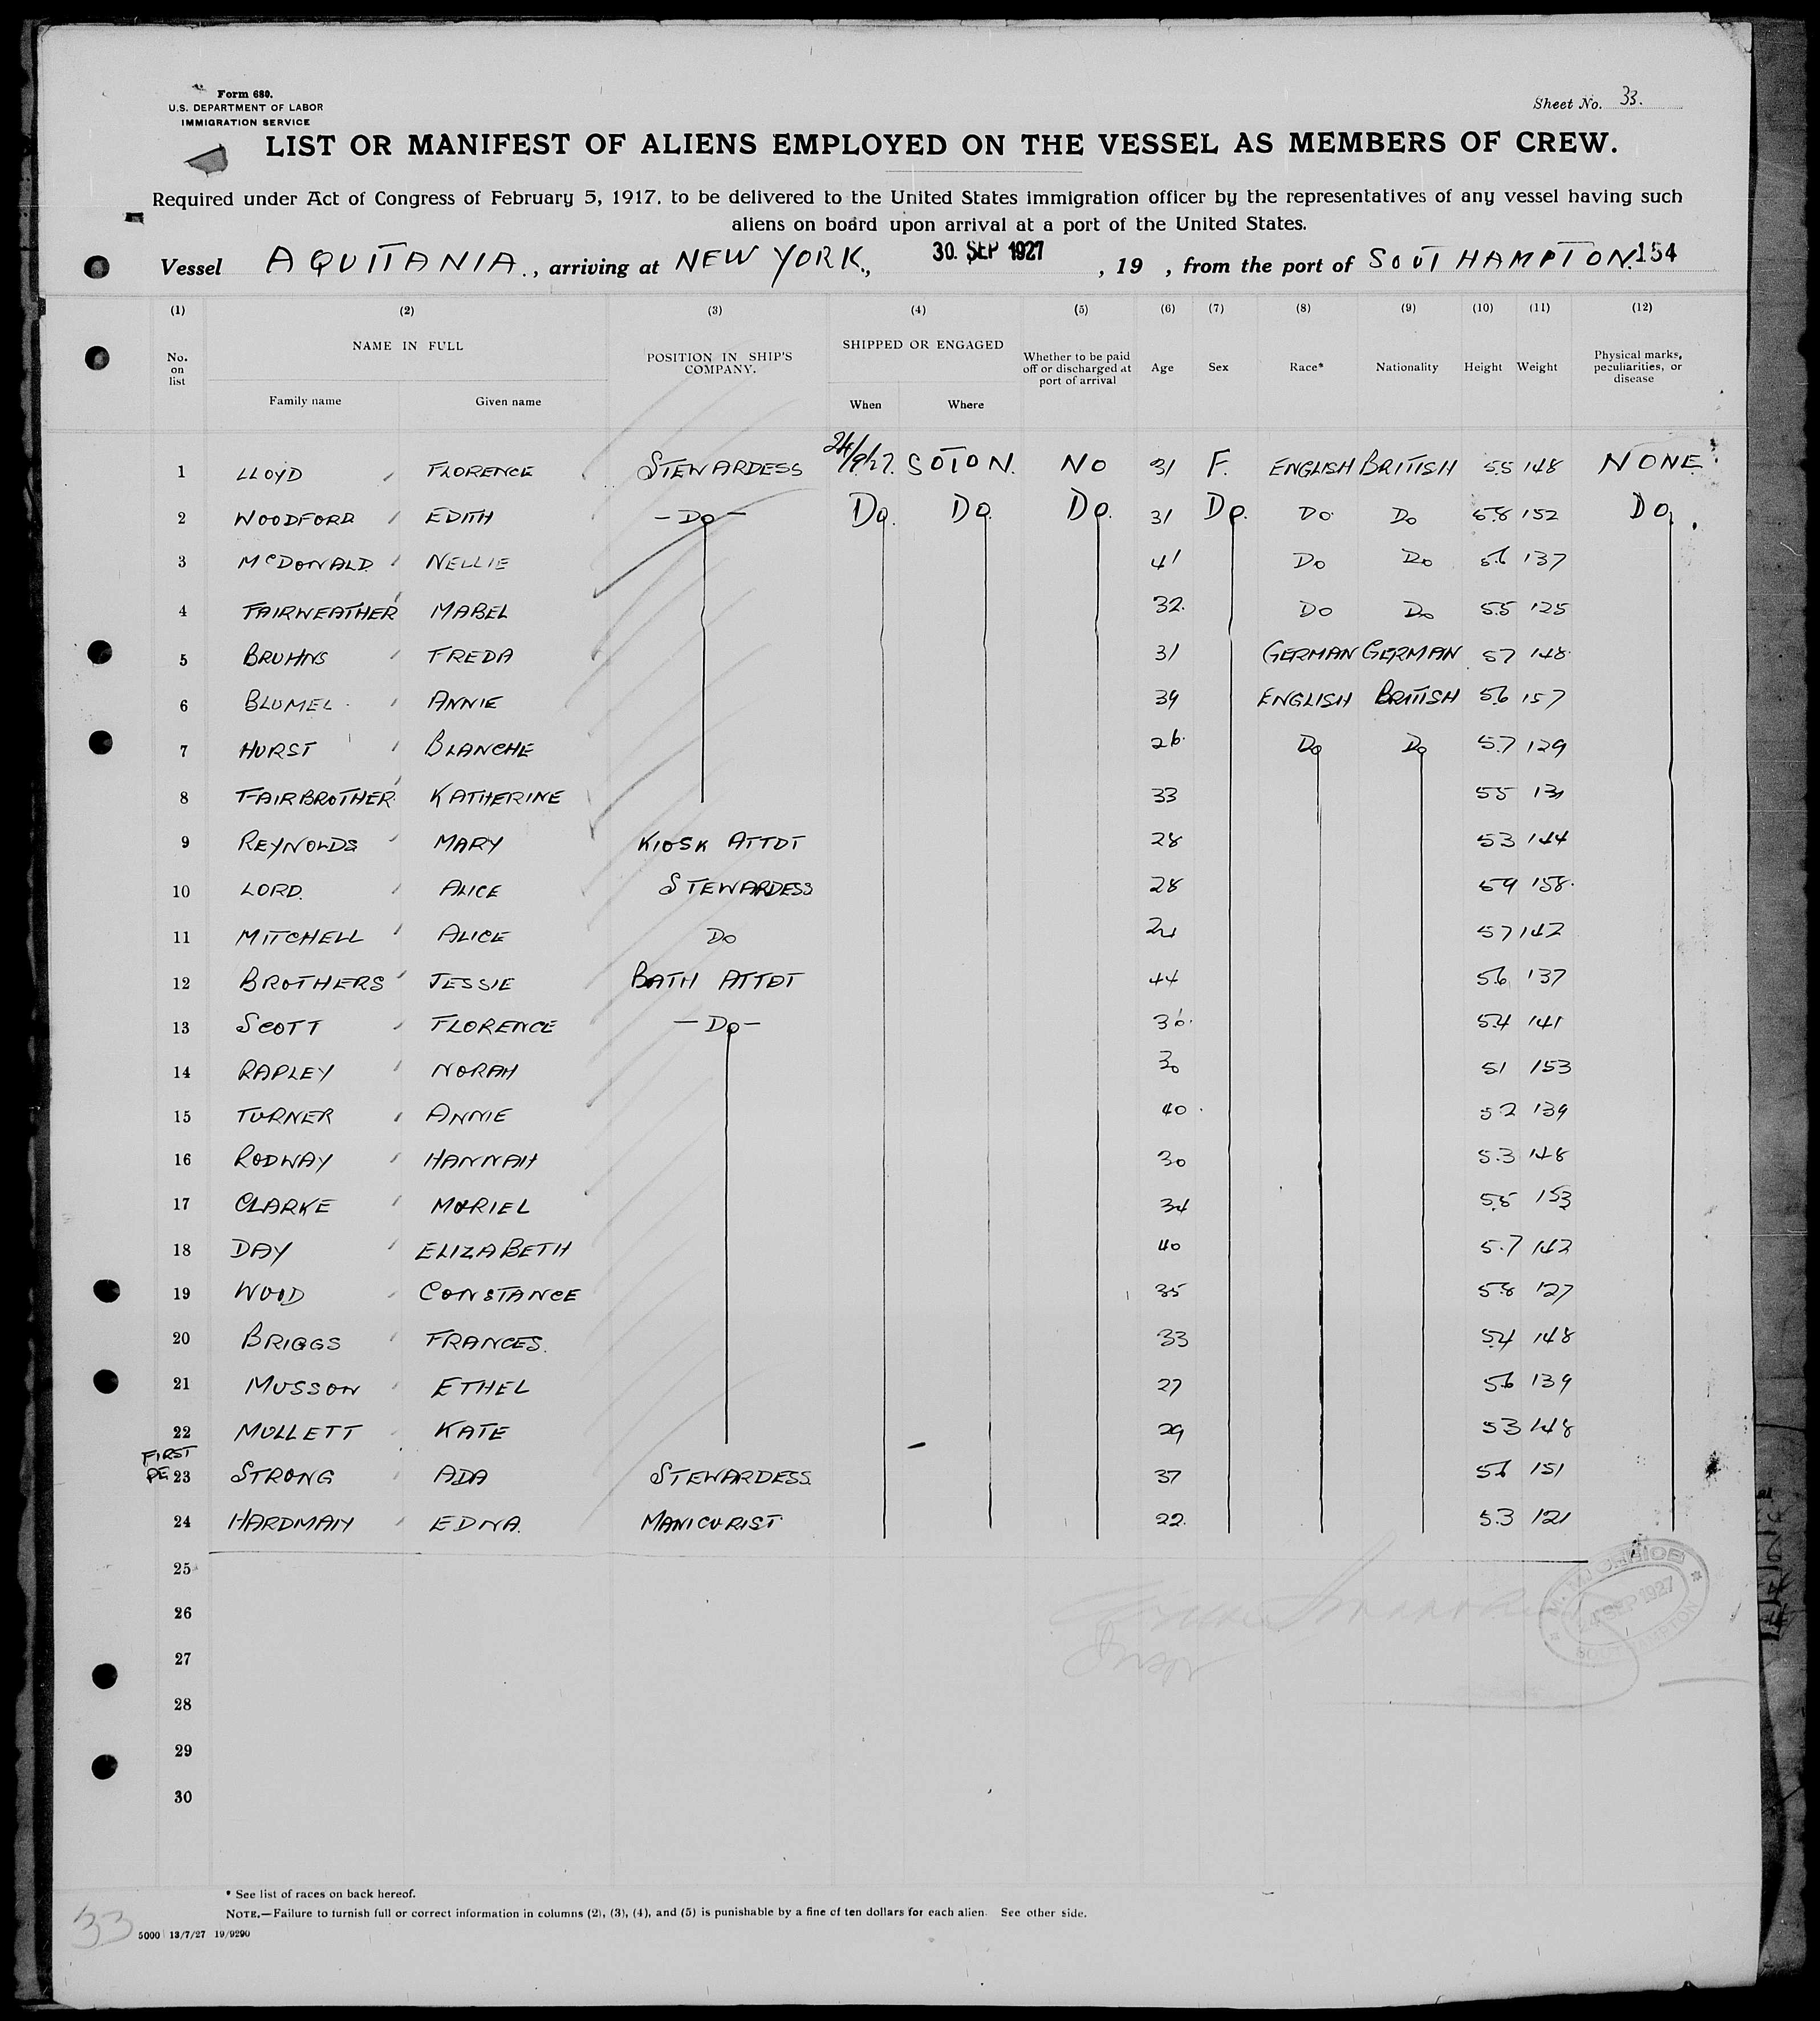 Form 680.
U.S. DEPARTMENT OF LABOR
IMMIGRATION SERVICE
Sheet No. 33.
LIST OR MANIFEST OF ALIENS EMPLOYED ON THE VESSEL AS MEMBERS OF CREW.
Required under Act of Congress of February 5, 1917, to be delivered to the United States immigration officer by the representatives of any vessel having such
aliens on board upon arrival at a port of the United States.
Vessel AQUITANIA., arriving at NEW YORK., 30. SEP 1927, 19 , from the port of SOUTHAMPTON. 154
(1) (2) (3) (4) (5) (6) (7) (8) (9) (10) (11) (12)
No. on list NAME IN FULL POSITION IN SHIP'S COMPANY. SHIPPED OR ENGAGED Whether to be paid off or discharged at port of arrival Age Sex Race* Nationality Height Weight Physical marks, peculiarities, or disease
Family name Given name When Where
1 LLOYD FLORENCE STEWARDESS 24/9/27. SOTON. NO 31 F. ENGLISH BRITISH 5.5 148 NONE.
2 WOODFORD EDITH – Do – Do. Do. Do. 31 Do. Do Do 5.8 152 Do.
3 McDONALD NELLIE 41 Do Do 5.6 137
4 FAIRWEATHER MABEL 32. Do Do 5.5 125
5 BRUHNS FREDA 31 GERMAN GERMAN 5.7 148
6 BLUMEL ANNIE 39 ENGLISH BRITISH 5.6 157
7 HURST BLANCHE 26. Do Do 5.7 129
8 FAIRBROTHER KATHERINE 33 5.5 131
9 REYNOLDS MARY KIOSK ATTDT 28 5.3 144
10 LORD. ALICE STEWARDESS 28 5.9 158.
11 MITCHELL ALICE Do 5.7 142
12 BROTHERS JESSIE BATH ATTDT 44 5.6 137
13 SCOTT FLORENCE – Do – 36. 5.4 141
14 RAPLEY NORAH 30 5.1 153
15 TURNER ANNIE 40. 5.2 139
16 RODWAY HANNAH 30 5.3 148
17 CLARKE MURIEL 34 5.5 153
18 DAY ELIZABETH 40 5.7 142
19 WOOD CONSTANCE 35 5.8 127
20 BRIGGS FRANCES. 33 5.4 148
21 MUSSON ETHEL 27 5.6 139
22 MULLETT KATE 29 5.3 148
FIRST
PE 23 STRONG ADA STEWARDESS. 37 5.6 151
24 HARDMAN EDNA. MANICURIST. 22. 5.3 121
25
26
24 SEP 1927
SOUTHAMPTON
27
28
29
30
* See list of races on back hereof.
NOTE.—Failure to furnish full or correct information in columns (2), (3), (4), and (5) is punishable by a fine of ten dollars for each alien. See other side.
33
5000 13/7/27 19/9290